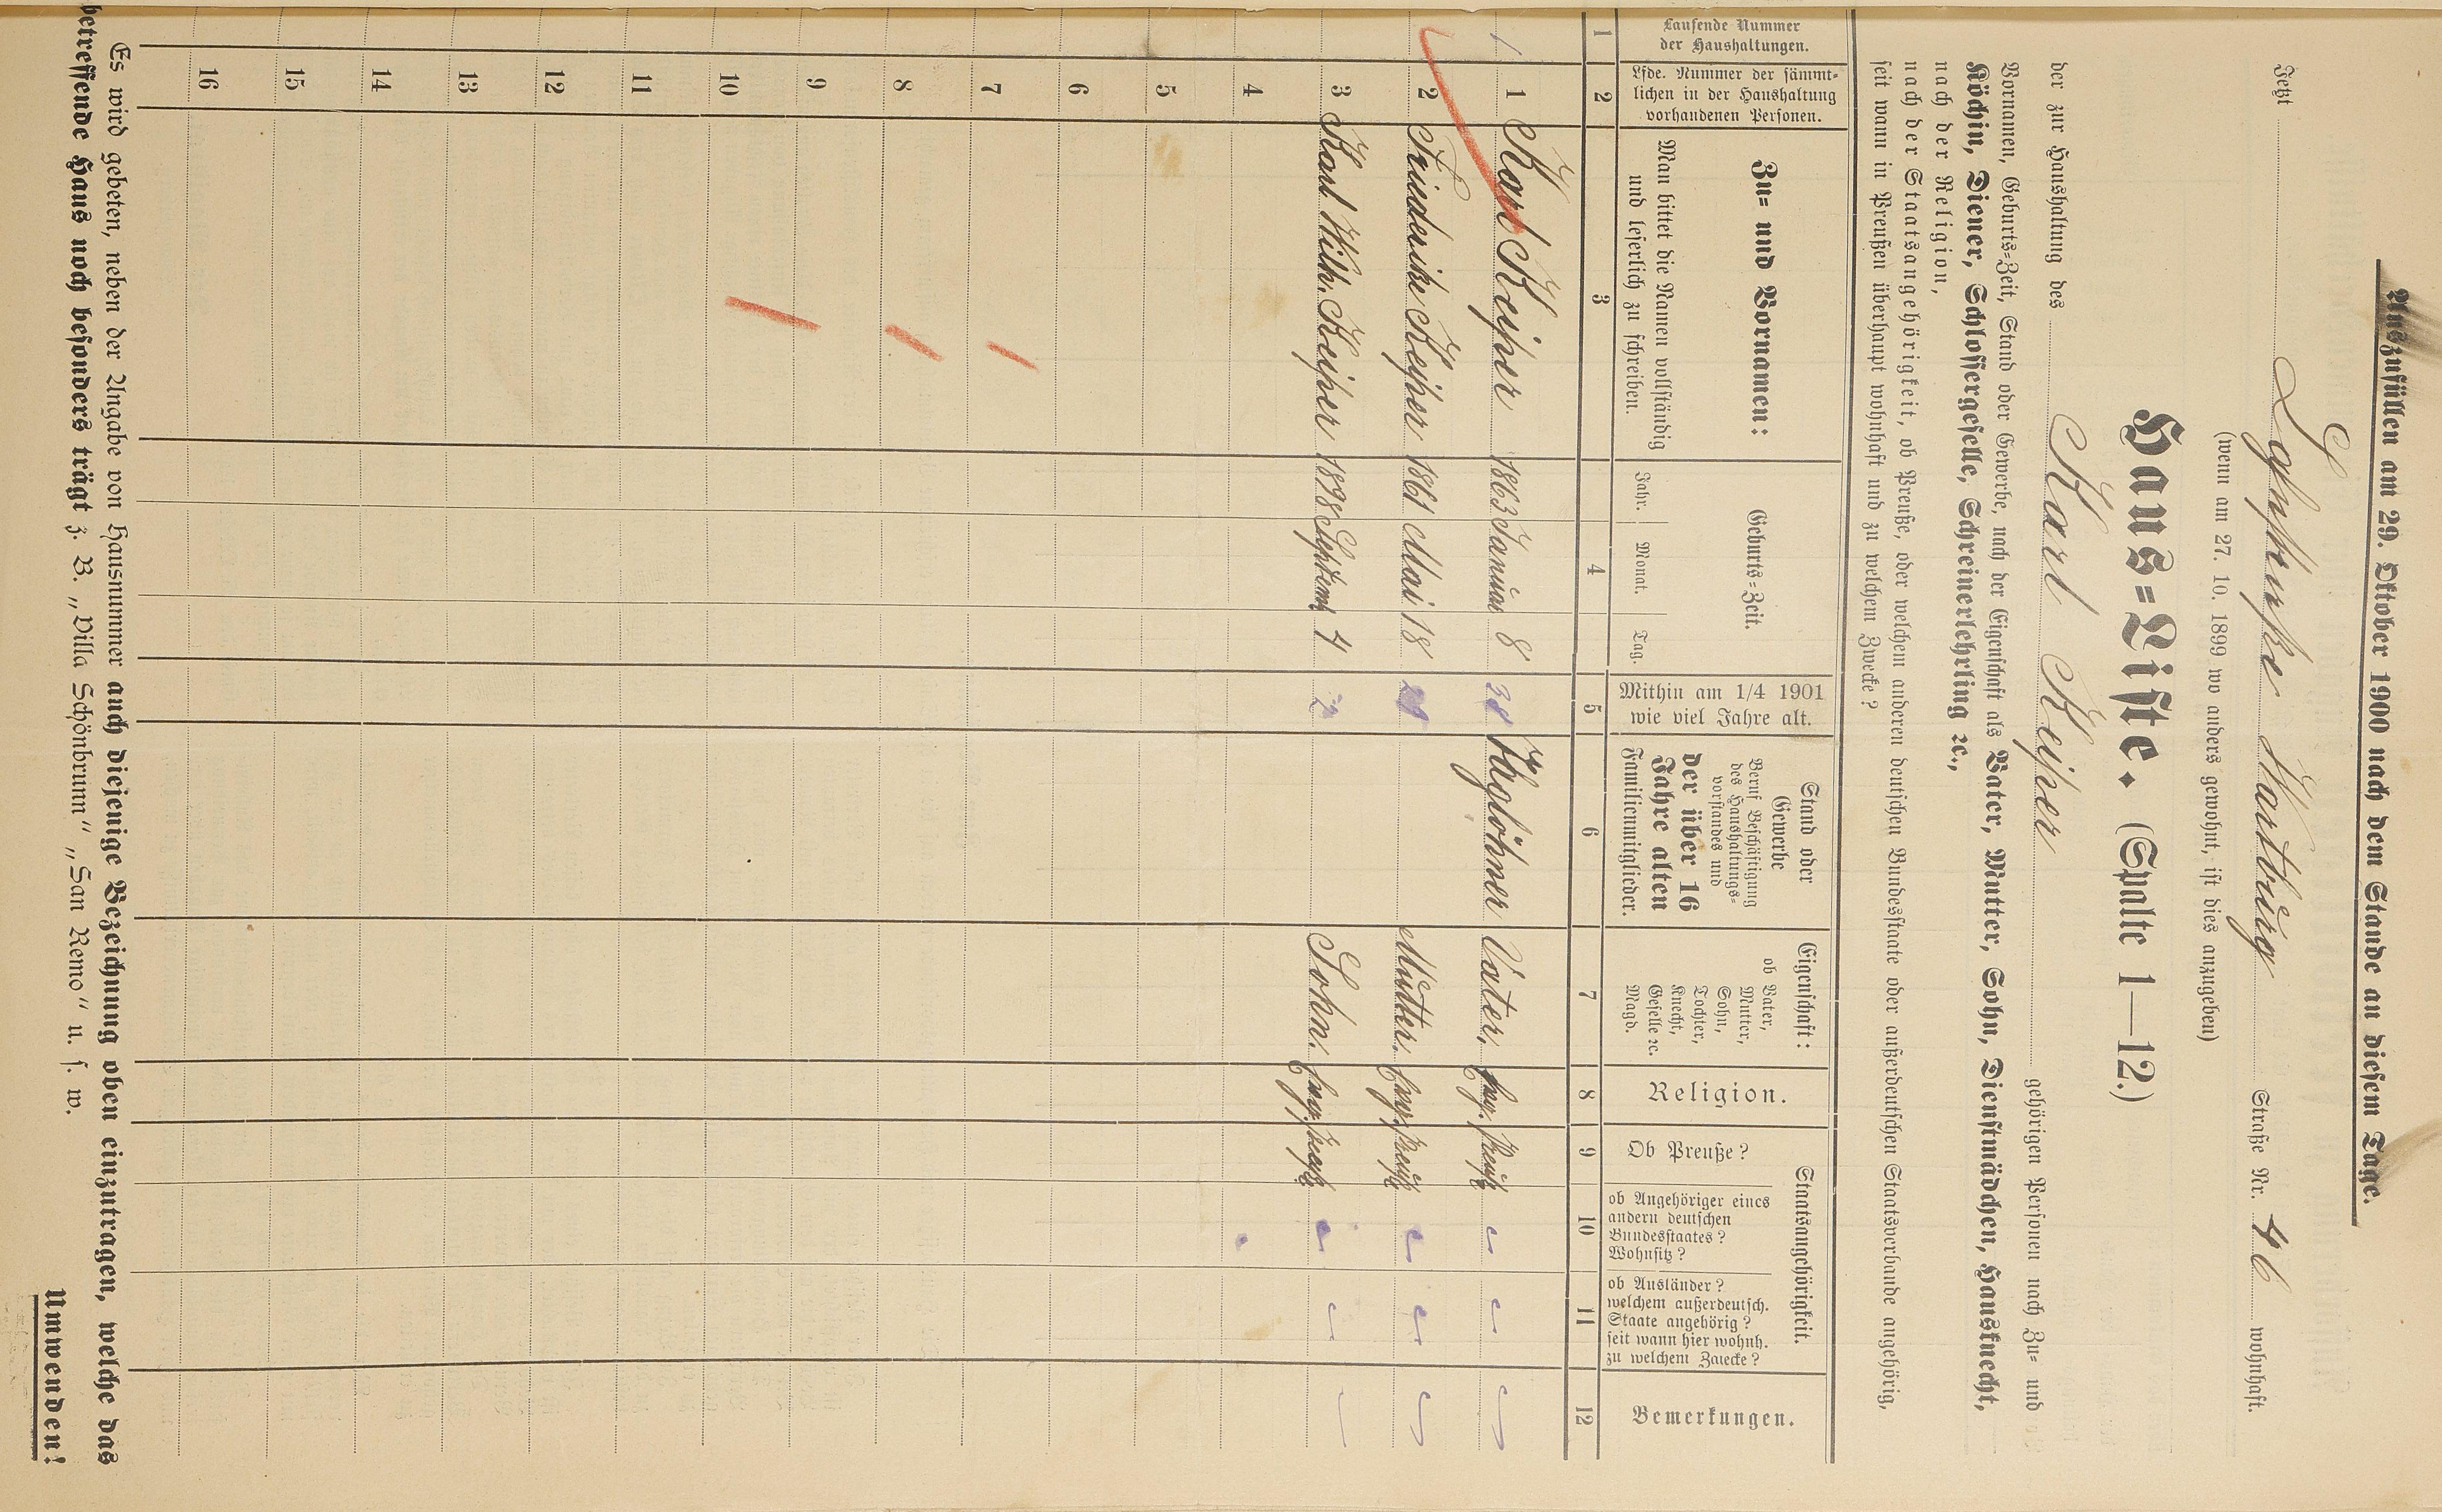 Auszufüllen am 29. Oktober 1900 nach dem Stande an diesem Tage.
Jetzt Lahnstraße Straße Nr. 46 wohnhaft.
(wenn am 27. 10. 1899 wo anders gewohnt, ist dies anzugeben)
Haus-Liste. (Spalte 1—12.)
der zur Haushaltung des Karl Keiper gehörigen Personen nach Zu- und
Vornamen, Geburts-Zeit, Stand oder Gewerbe, nach der Eigenschaft als Vater, Mutter, Sohn, Dienstmädchen, Hausknecht,
Köchin, Diener, Schlossergeselle, Schreinerlehrling ec.,
nach der Religion,
nach der Staatsangehörigkeit, ob Preuße, oder welchem anderen deutschen Bundesstaate oder außerdeutschen Staatsverbande angehörig,
seit wann in Preußen überhaupt wohnhaft und zu welchem Zwecke?
Laufende Nummer
der Haushaltungen.
Lfde. Nummer der sämmt-
lichen in der Haushaltung
vorhandenen Personen.
Zu- und Vornamen:
Man bittet die Namen vollständig
und leserlich zu schreiben.
Geburts-Zeit.
Jahr. Monat. Tag.
Mithin am 1/4 1901
wie viel Jahre alt.
Stand oder
Gewerbe
Beruf Beschäftigung
des Haushaltungs-
vorstandes und
der über 16
Jahre alten
Familienmitglieder.
Eigenschaft:
ob Vater,
Mutter,
Sohn,
Tochter,
Knecht,
Geselle ec.
Magd.
Religion.
Staatsangehörigkeit.
Ob Preuße?
ob Angehöriger eines
andern deutschen
Bundesstaates?
Wohnsitz?
ob Ausländer?
welchem außerdeutsch.
Staate angehörig?
seit wann hier wohnh.
zu welchem Zwecke?
Bemerkungen.
1 2 3 4 5 6 7 8 9 10 11 12
1 1 Karl Keiper 1863 Januar 8 38 Taglöhner Vater. Evg. Preuße
2 Friederike Keiper 1861 Mai 18 Mutter. Evg. Preuße
3 Karl Wilh. Keiper 1898 Septemb 4 2 Sohn. Evg. Preuße
4
5
6
7
8
9
10
11
12
13
14
15
16
Es wird gebeten, neben der Angabe von Hausnummer auch diejenige Bezeichnung oben einzutragen, welche das
betreffende Haus noch besonders trägt z. B. „Villa Schönbrunn" „San Remo" u. s. w.
Umwenden!